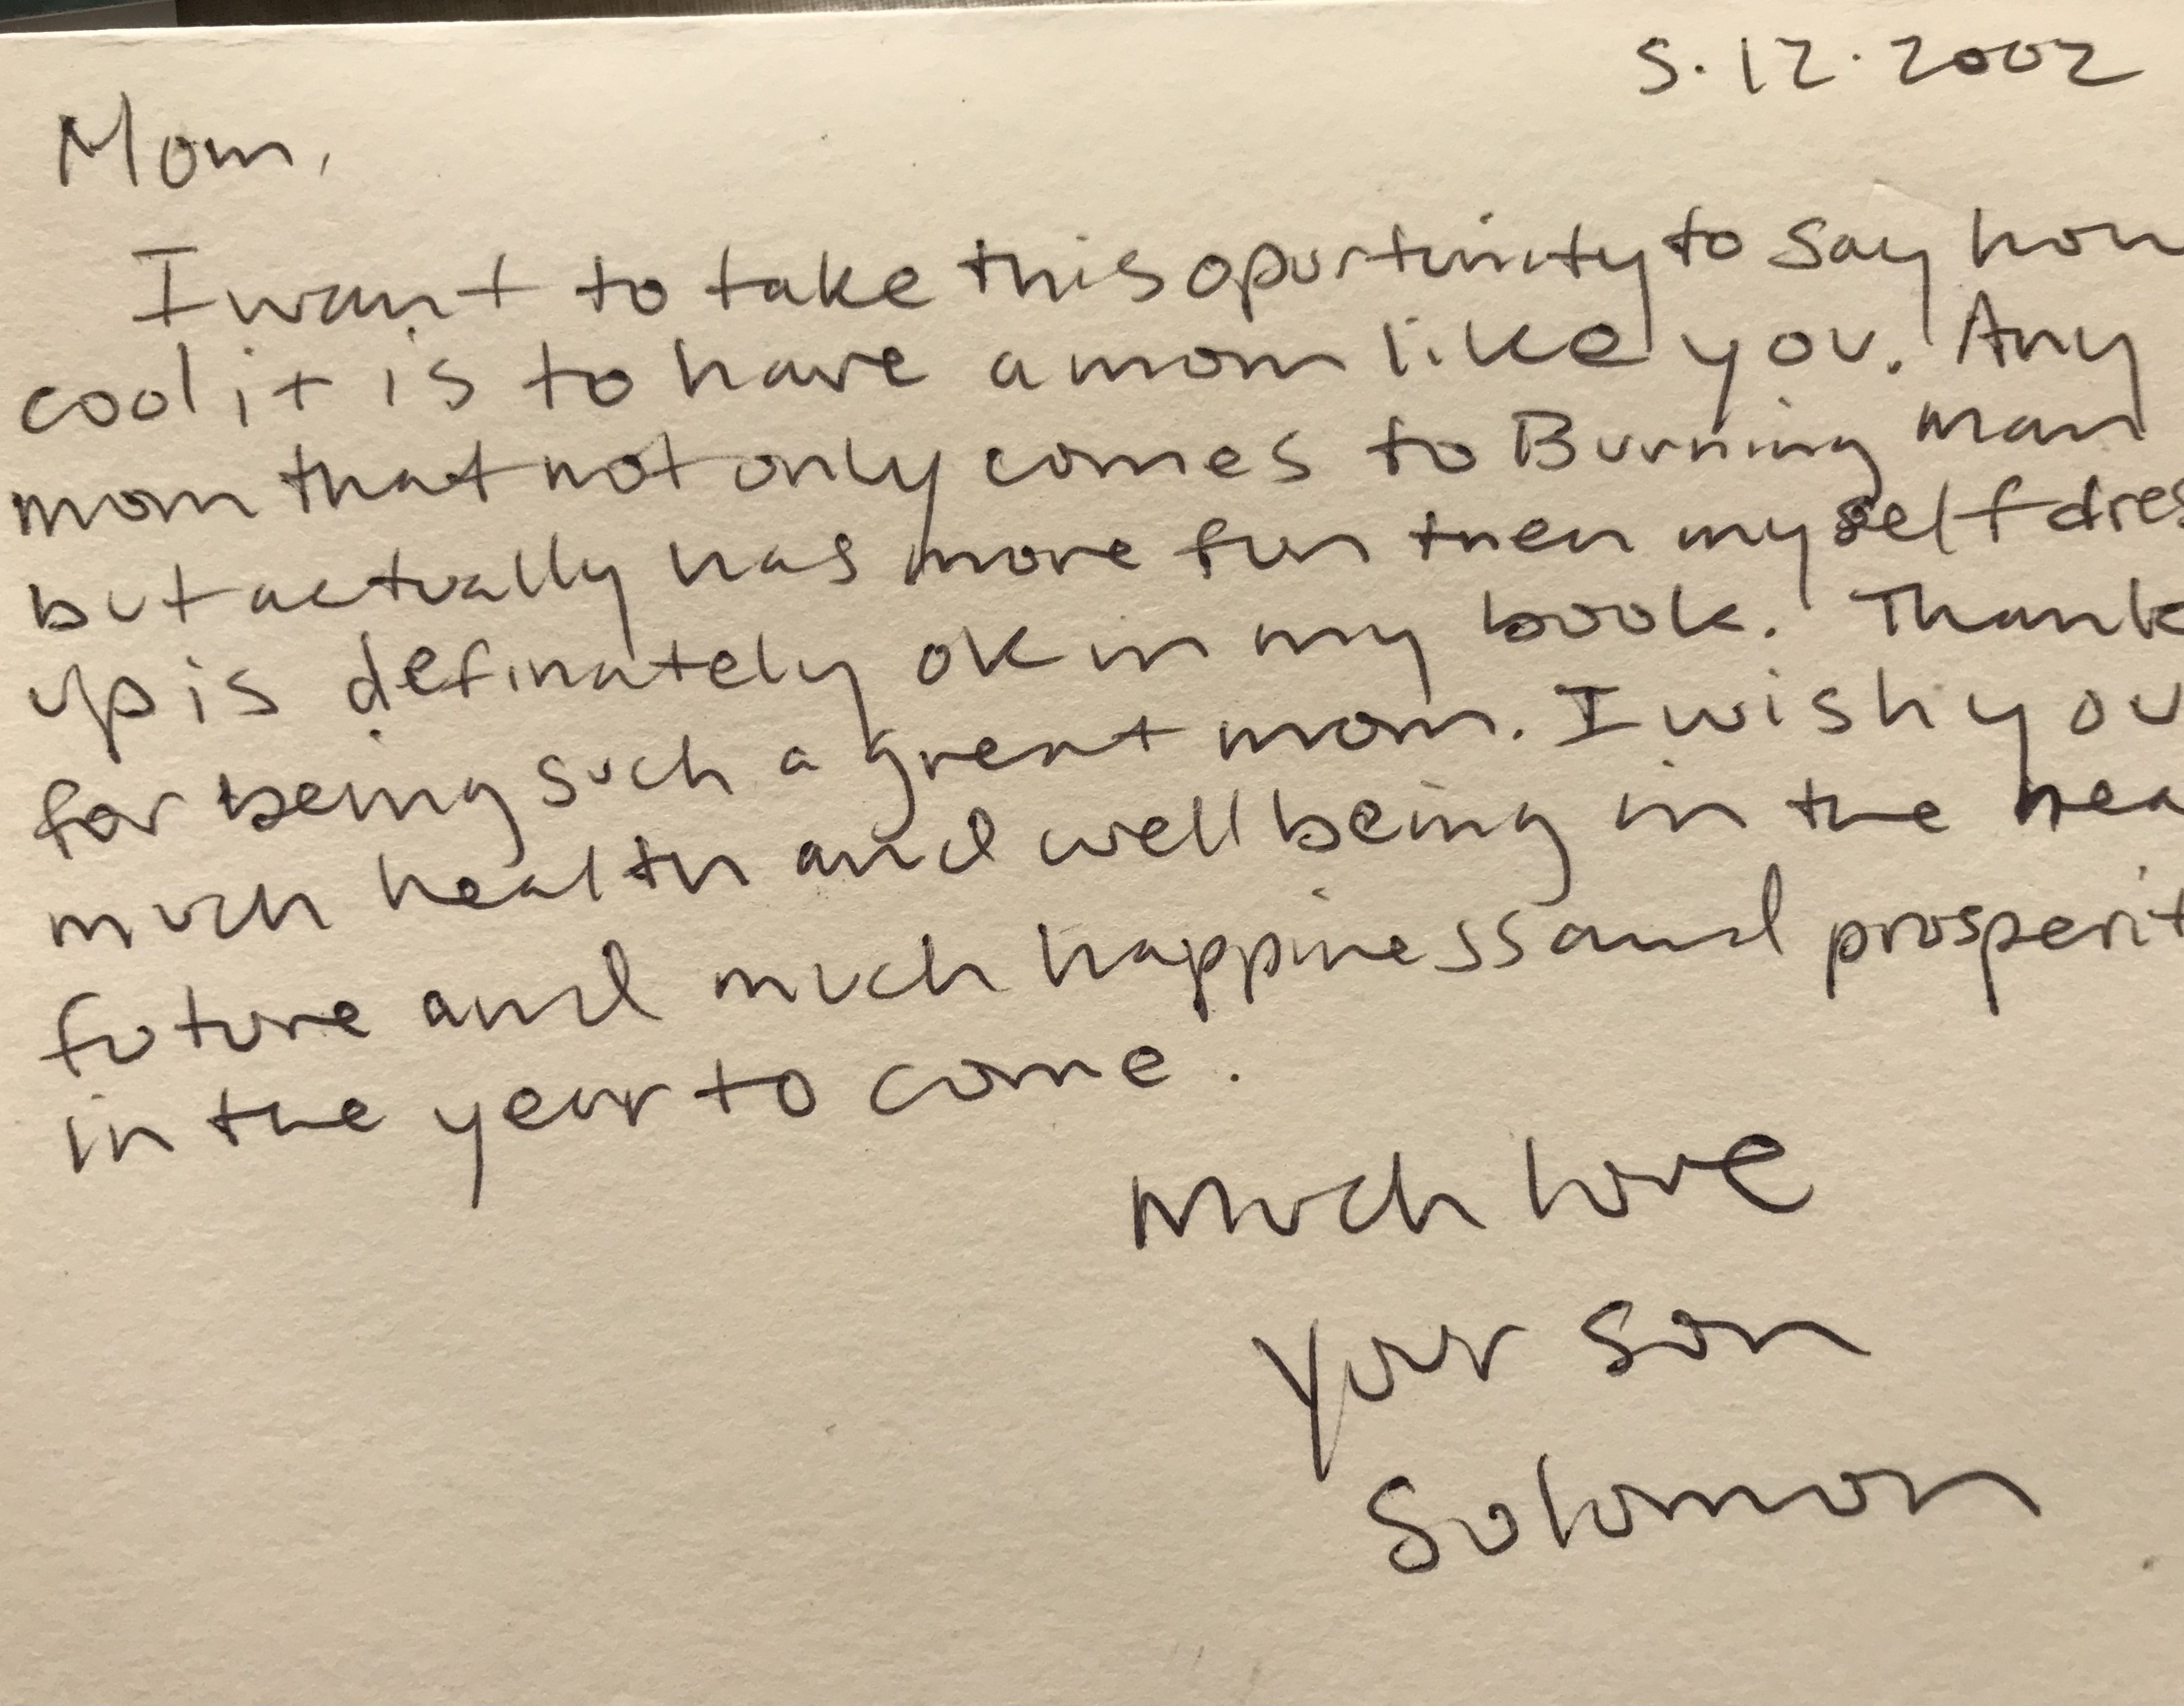 5.12.2002
Mom,
I want to take this oportunity to say how
cool it is to have a mom like you. Any
mom that not only comes to Burning man
but actually has more fun then myself dres
up is definately ok in my book. Thank
for being such a great mom. I wish you
much health and well being in the nea
future and much happiness and prosperit
in the year to come.
Much love
Your son
Solomon